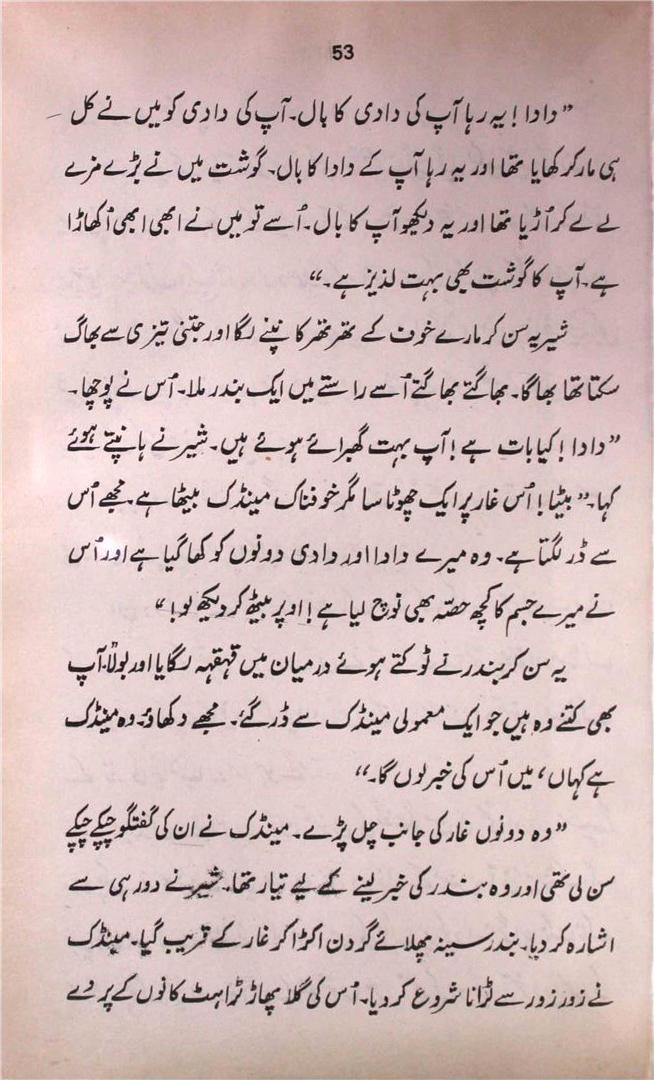 53
”دادا! یہ رہا آپ کی دادی کا بال۔ آپ کی دادی کو میں نے کل
ہی مار کر کھایا تھا اور یہ رہا آپ کے دادا کا بال۔ گوشت میں نے بڑے مزے
لے لے کر اُڑیا تھا اور یہ دیکھو آپ کا بال۔ اُسے تو میں نے ابھی ابھی اُکھاڑا
ہے۔ آپ کا گوشت بھی بہت لذیز ہے۔“
شیر یہ سن کر مارے خوف کے تھر تھر کانپنے لگا اور جتنی تیزی سے بھاگ
سکتا تھا بھاگا۔ بھاگتے بھاگتے اُسے راستے میں ایک بندر ملا۔ اُس نے پوچھا۔
”دادا! کیا بات ہے! آپ بہت گھبرائے ہوئے ہیں۔ شیر نے ہانپتے ہوئے
کہا۔ ”بیٹا! اُس غار پر ایک چھوٹا سا مگر خوفناک مینڈک بیٹھا ہے۔ مجھے اُس
سے ڈر لگتا ہے۔ وہ میرے دادا اور دادی دونوں کو کھا گیا ہے اور اُس
نے میرے جسم کا کچھ حصّہ بھی نوچ لیا ہے! اوپر بیٹھ کر دیکھ لو!“
یہ سن کر بندر نے ٹوکتے ہوئے درمیان میں قہقہہ لگایا اور بولا۔ آپ
بھی کتنے وہ ہیں جو ایک معمولی مینڈک سے ڈر گئے۔ مجھے دکھاؤ۔ وہ مینڈک
ہے کہاں، میں اُس کی خبر لوں گا۔“
”وہ دونوں غار کی جانب چل پڑے۔ مینڈک نے ان کی گفتگو چپکے چپکے
سن لی تھی اور وہ بندر کی خبر لینے کے لیے تیار تھا۔ شیر نے دور ہی سے
اشارہ کر دیا۔ بندر سینہ پھلائے گردن اکڑا کر غار کے قریب گیا۔ مینڈک
نے زور زور سے ٹرّانا شروع کر دیا۔ اُس کی گلا پھاڑ ٹراہٹ کانوں کے پردے